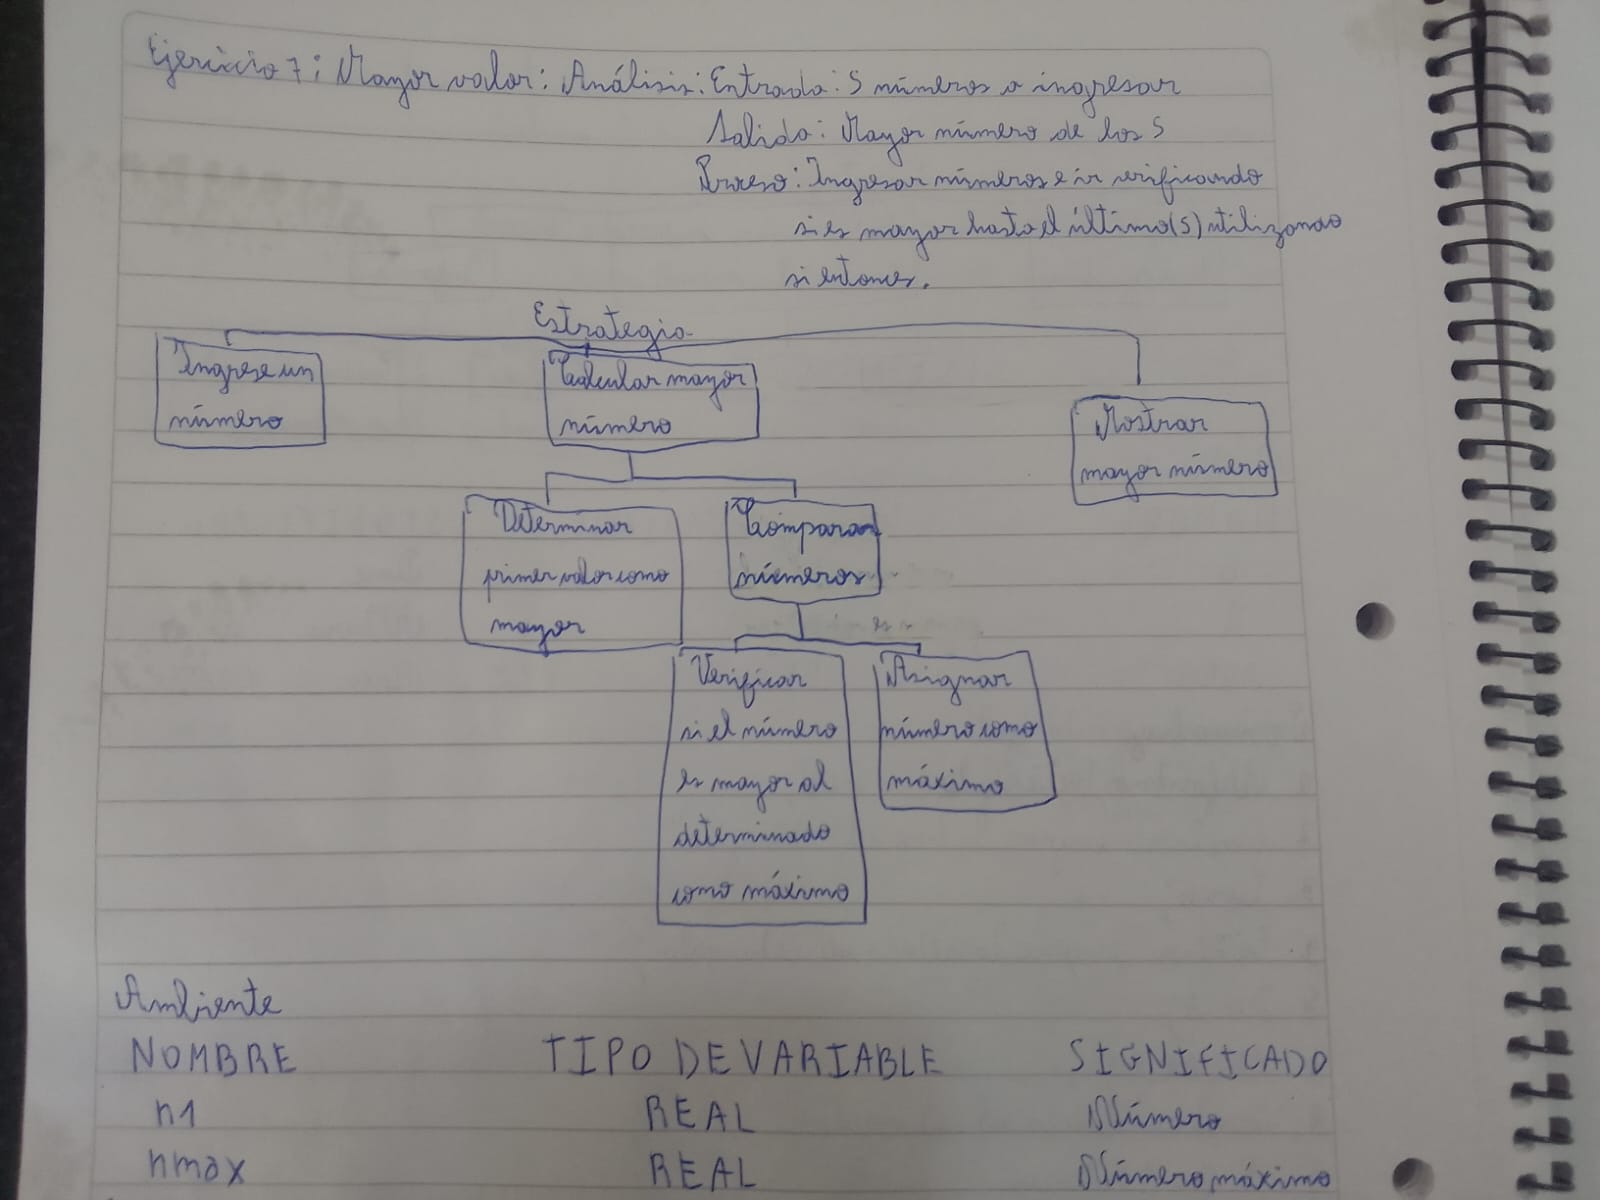 Ejercicio 7: Mayor valor: Análisis: Entrada: 5 números a ingresar
Salida: Mayor número de los 5
Proceso: Ingresar números e ir verificando
si es mayor hasta el último(5) utilizando
si entonces.
Estrategia
Ingrese un
número
Calcular mayor
número
Mostrar
mayor número
Determinar
primer valor como
mayor
Comparar
números
Verificar
si el número
es mayor al
determinado
como máximo
Asignar
número como
máximo
Ambiente
NOMBRE TIPO DE VARIABLE SIGNIFICADO
n1 REAL Número
nmax REAL Número máximo